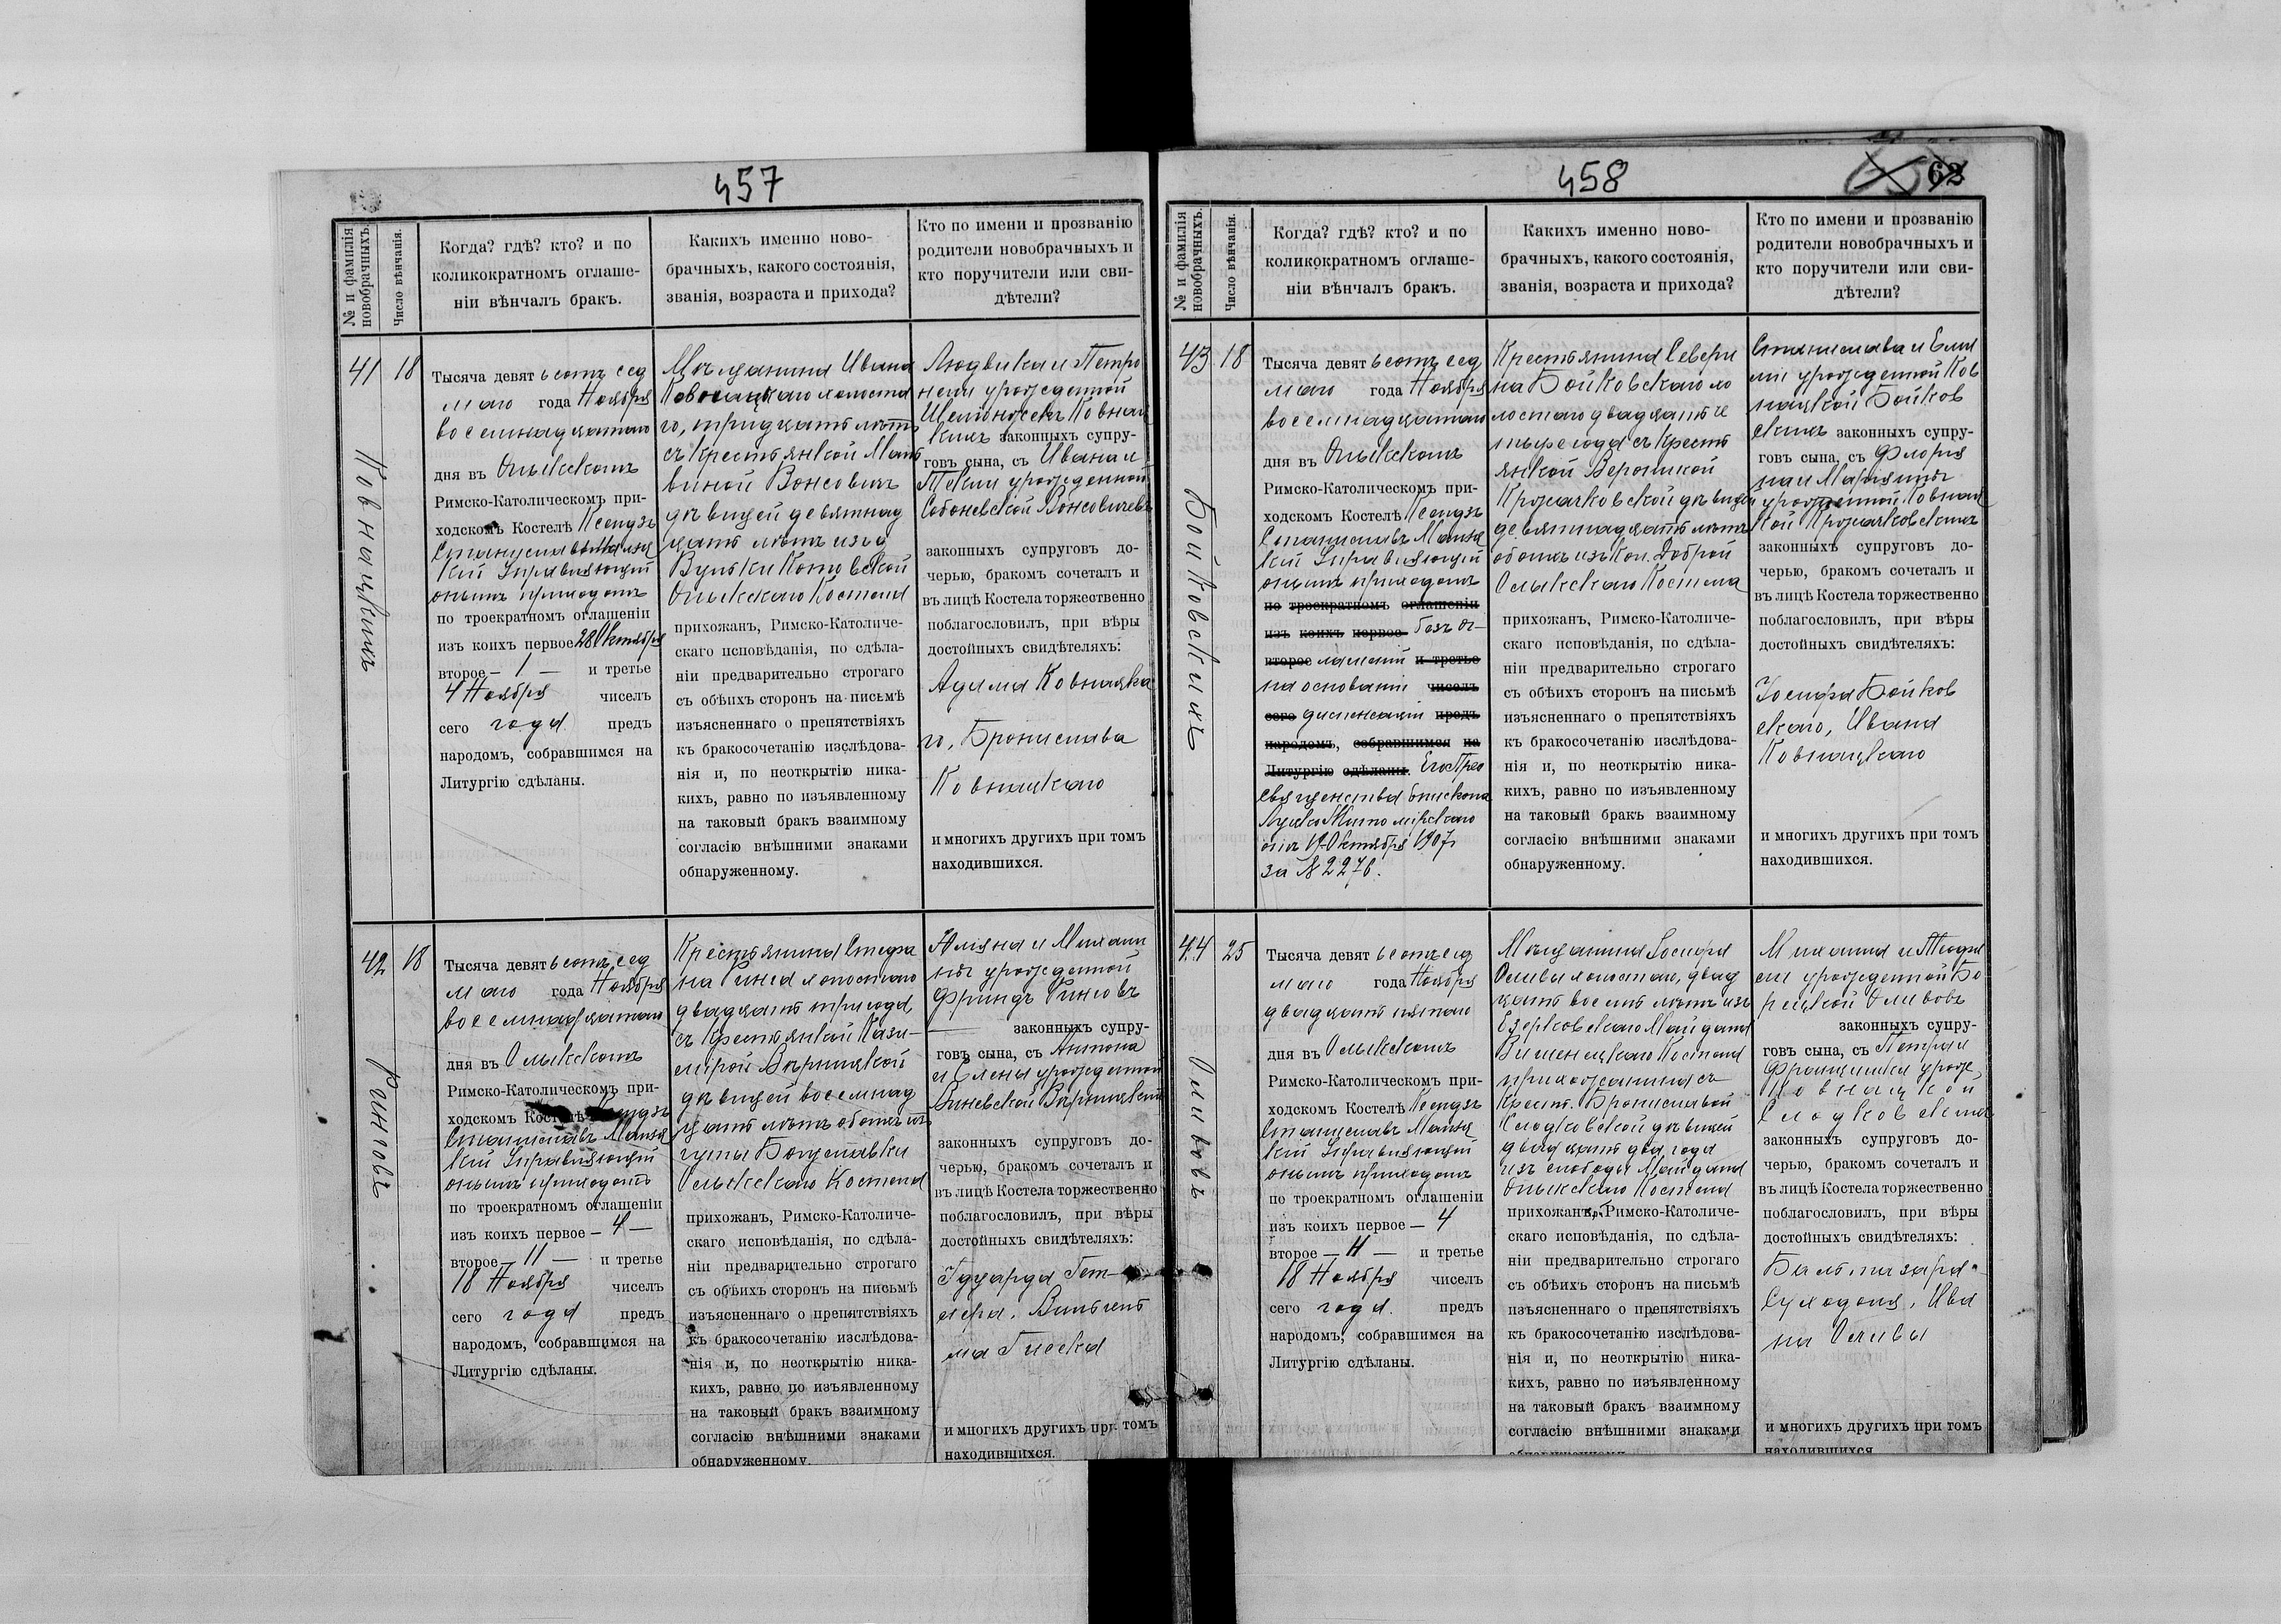 457
№ и фамилія новобрачныхъ.
Число вѣнчанія.
Когда? гдѣ? кто? и по
коликократномъ оглаше-
ніи вѣнчалъ бракъ.
Какихъ именно ново-
брачныхъ, какого состоянія,
званія, возраста и прихода?
Кто по имени и прозванію
родители новобрачныхъ и
кто поручители или сви-
дѣтели?
41
Ковнацкихъ
18
Тысяча девятьсотъ сед
маго года Ноября
восемнадцатаго
дня въ Олыкскомъ
Римско-Католическомъ при-
ходскомъ Костелѣ Ксендзъ
Станиславъ
кій Управляющій
онымъ приходомъ
по троекратномъ оглашеніи
изъ коихъ первое 28 Октября
второе — 1 — и третье
4 Ноября чиселъ
сего года предъ
народомъ, собравшимся на
Литургію сдѣланы.
Мѣщанина Ивана
Ковнацкаго холоста
го, тридцати лѣтъ
съ крестьянкой Маль
виной Вонсовичъ
дѣвицей девятнад
цати лѣтъ изъ д
Вульки Котовской
Олыкскаго Костела
прихожанъ, Римско-Католиче-
скаго исповѣданія, по сдѣла-
ніи предварительно строгаго
съ обѣихъ сторонъ на письмѣ
изъясненнаго о препятствіяхъ
къ бракосочетанію изслѣдова-
нія и, по неоткрытію ника-
кихъ, равно по изъявленному
на таковый бракъ взаимному
согласію внѣшними знаками
обнаруженному.
Людвика и Петро
нели урожденной
Ковнац
кихъ законныхъ супру-
говъ сына, съ Ивана и
Текли урожденной
Вонсовичевъ
законныхъ супруговъ до-
черью, бракомъ сочеталъ и
въ лицѣ Костела торжественно
поблагословилъ, при вѣры
достойныхъ свидѣтеляхъ:
Адама Ковнацка
го, Бронислава
Ковнацкаго
и многихъ другихъ при томъ
находившихся.
42
Ринговъ
18
Тысяча девятьсотъ сед
маго года Ноября
восемнадцатаго
дня въ Олыкскомъ
Римско-Католическомъ при-
ходскомъ Костелѣ Ксендзъ
Станиславъ
кій Управляющій
онымъ приходомъ
по троекратномъ оглашеніи
изъ коихъ первое — 4 —
второе — 11 — и третье
18 Ноября чиселъ
сего года предъ
народомъ, собравшимся на
Литургію сдѣланы.
Крестьянина Стефа
на Ринга холостаго
двадцати три года
съ крестьянкой Кази-
мирой
дѣвицей восемнад
цати лѣтъ обоихъ изъ
гуты Богуславки
Олыкскаго Костела
прихожанъ, Римско-Католиче-
скаго исповѣданія, по сдѣла-
ніи предварительно строгаго
съ обѣихъ сторонъ на письмѣ
изъясненнаго о препятствіяхъ
къ бракосочетанію изслѣдова-
нія и, по неоткрытію ника-
кихъ, равно по изъявленному
на таковый бракъ взаимному
согласію внѣшними знаками
обнаруженному.
Юліяна и Михали
ны урожденной
Фриндъ Ринговъ
законныхъ супру-
говъ сына, съ Антона
и Елены урожденной
законныхъ супруговъ до-
черью, бракомъ сочеталъ и
въ лицѣ Костела торжественно
поблагословилъ, при вѣры
достойныхъ свидѣтеляхъ:
и многихъ другихъ при томъ
находившихся.
458
62
№ и фамилія новобрачныхъ.
Число вѣнчанія.
Когда? гдѣ? кто? и по
коликократномъ оглаше-
ніи вѣнчалъ бракъ.
Какихъ именно ново-
брачныхъ, какого состоянія,
званія, возраста и прихода?
Кто по имени и прозванію
родители новобрачныхъ и
кто поручители или сви-
дѣтели?
43
Бойковскихъ
18
Тысяча девятьсотъ сед
маго года Ноября
восемнадцатаго
дня въ Олыкскомъ
Римско-Католическомъ при-
ходскомъ Костелѣ Ксендзъ
Станиславъ
кій Управляющій
онымъ приходомъ
по троекратномъ оглашеніи
изъ коихъ первое безъ ог-
второе лашеній и третье
на основаніи чиселъ
сего диспенсаціи предъ
народомъ, собравшимся на
Литургію сдѣланы. Его Прео
священства Епископа
Луцко Житомірскаго
отъ 19 Октября 1907 г
за № 2276.
Крестьянина Севери
на Бойковскаго хо
лостаго двадцати че
тыре года съ крестъ
янкой Вероникой
Крожачковской дѣвицей
девятнадцати лѣтъ
обоихъ изъ кол. Доброй
Олыкскаго Костела
прихожанъ, Римско-Католиче-
скаго исповѣданія, по сдѣла-
ніи предварительно строгаго
съ обѣихъ сторонъ на письмѣ
изъясненнаго о препятствіяхъ
къ бракосочетанію изслѣдова-
нія и, по неоткрытію ника-
кихъ, равно по изъявленному
на таковый бракъ взаимному
согласію внѣшними знаками
обнаруженному.
Станислава и Емил
ліи урожденной Ков
нацкой Бойков
скихъ законныхъ супру-
говъ сына, съ Флорія
на и Маріянны
урожденной Ковнац
кой Крожачковскихъ
законныхъ супруговъ до-
черью, бракомъ сочеталъ и
въ лицѣ Костела торжественно
поблагословилъ, при вѣры
достойныхъ свидѣтеляхъ:
Іосифа Бойков
скаго, Ивана
Ковнацкаго
и многихъ другихъ при томъ
находившихся.
44
Оливовъ
25
Тысяча девятьсотъ сед
маго года Ноября
двадцать пятаго
дня въ Олыкскомъ
Римско-Католическомъ при-
ходскомъ Костелѣ Ксендзъ
Станиславъ
кій Управляющій
онымъ приходомъ
по троекратномъ оглашеніи
изъ коихъ первое — 4
второе — 11 — и третье
18 Ноября чиселъ
сего года предъ
народомъ, собравшимся на
Литургію сдѣланы.
Мѣщанина Іосифа
Оливы холостаго, двад
цати восемь лѣтъ изъ
Езерковскаго Майдана
Костела
прихожанина съ
Крест. Брониславой
Слодковской дѣвицей
двадцати два года
изъ слободы Майдана
Олыкскаго Костела
прихожанъ, Римско-Католиче-
скаго исповѣданія, по сдѣла-
ніи предварительно строгаго
съ обѣихъ сторонъ на письмѣ
изъясненнаго о препятствіяхъ
къ бракосочетанію изслѣдова-
нія и, по неоткрытію ника-
кихъ, равно по изъявленному
на таковый бракъ взаимному
согласію внѣшними знаками
Михаила и Теофи
ли урожденной Бо
рецкой Оливовъ
законныхъ супру-
говъ сына, съ Петра и
Францишки урожд.
Ковнацкой
законныхъ супруговъ до-
черью, бракомъ сочеталъ и
въ лицѣ Костела торжественно
поблагословилъ, при вѣры
достойныхъ свидѣтеляхъ:
Бальтазара
Суходоля, Ива
на Оливы
и многихъ другихъ при томъ
находившихся